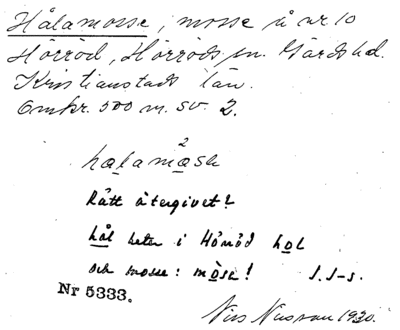 Hålamosse, mosse å nr 10
Hörröd, Hörröds sn. Gärds hd.
Kristianstads län.
Omkr. 500 m. sv. 2.
2
halamåse
Rätt återgivet?
hål heter i Hörröd hol
och mosse: måse! J.J-s.
Nr 5333.
Nils 1930.